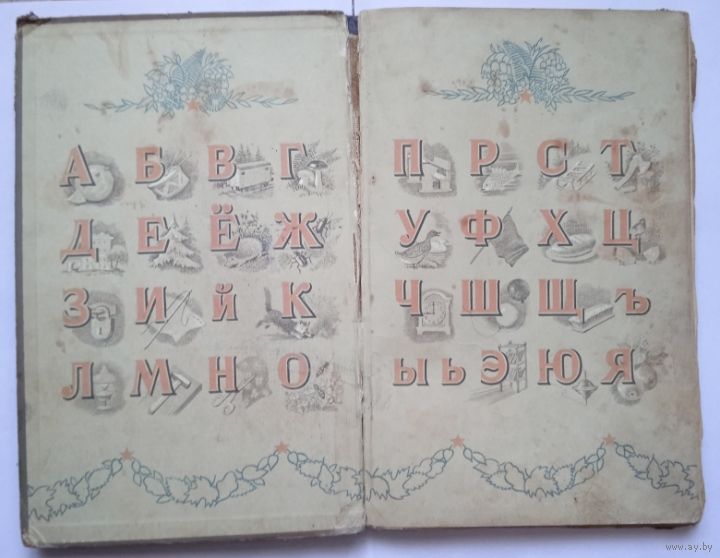 А Б В Г
Д Е Ё Ж
З И й К
Л М Н О
П Р С Т
У Ф Х Ц
Ч Ш Щ ъ
ы ь Э Ю Я
www.ay.by